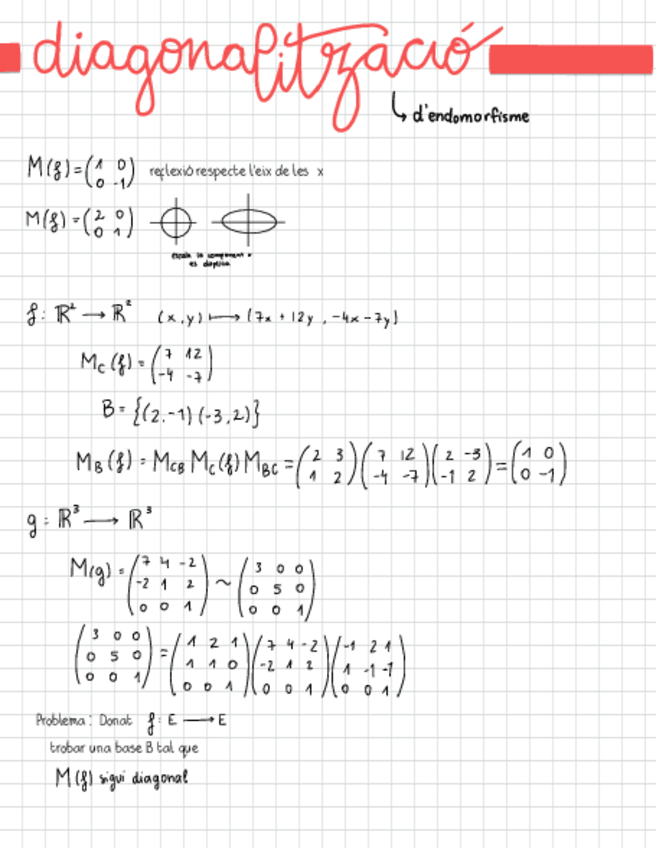 diagonalització
↳ d'endomorfisme
M(f) = (1 0; 0 -1) reflexió respecte l'eix de les x
M(f) = (2 0; 0 1)
escala la component x
es
f: ℝ² → ℝ² (x,y) ⟼ (7x + 12y, -4x - 7y)
M_C(f) = (7 12; -4 -7)
B = {(2,-1) (-3,2)}
M_B(f) = M_CB M_C(f) M_BC = (2 3; 1 2)(7 12; -4 -7)(2 -3; -1 2) = (1 0; 0 -1)
g: ℝ³ → ℝ³
M(g) = (7 4 -2; -2 1 2; 0 0 1) ~ (3 0 0; 0 5 0; 0 0 1)
(3 0 0; 0 5 0; 0 0 1) = (1 2 1; 1 1 0; 0 0 1)(7 4 -2; -2 1 2; 0 0 1)(-1 2 1; 1 -1 -1; 0 0 1)
Problema: Donat f: E → E
trobar una base B tal que
M(f) sigui diagonal